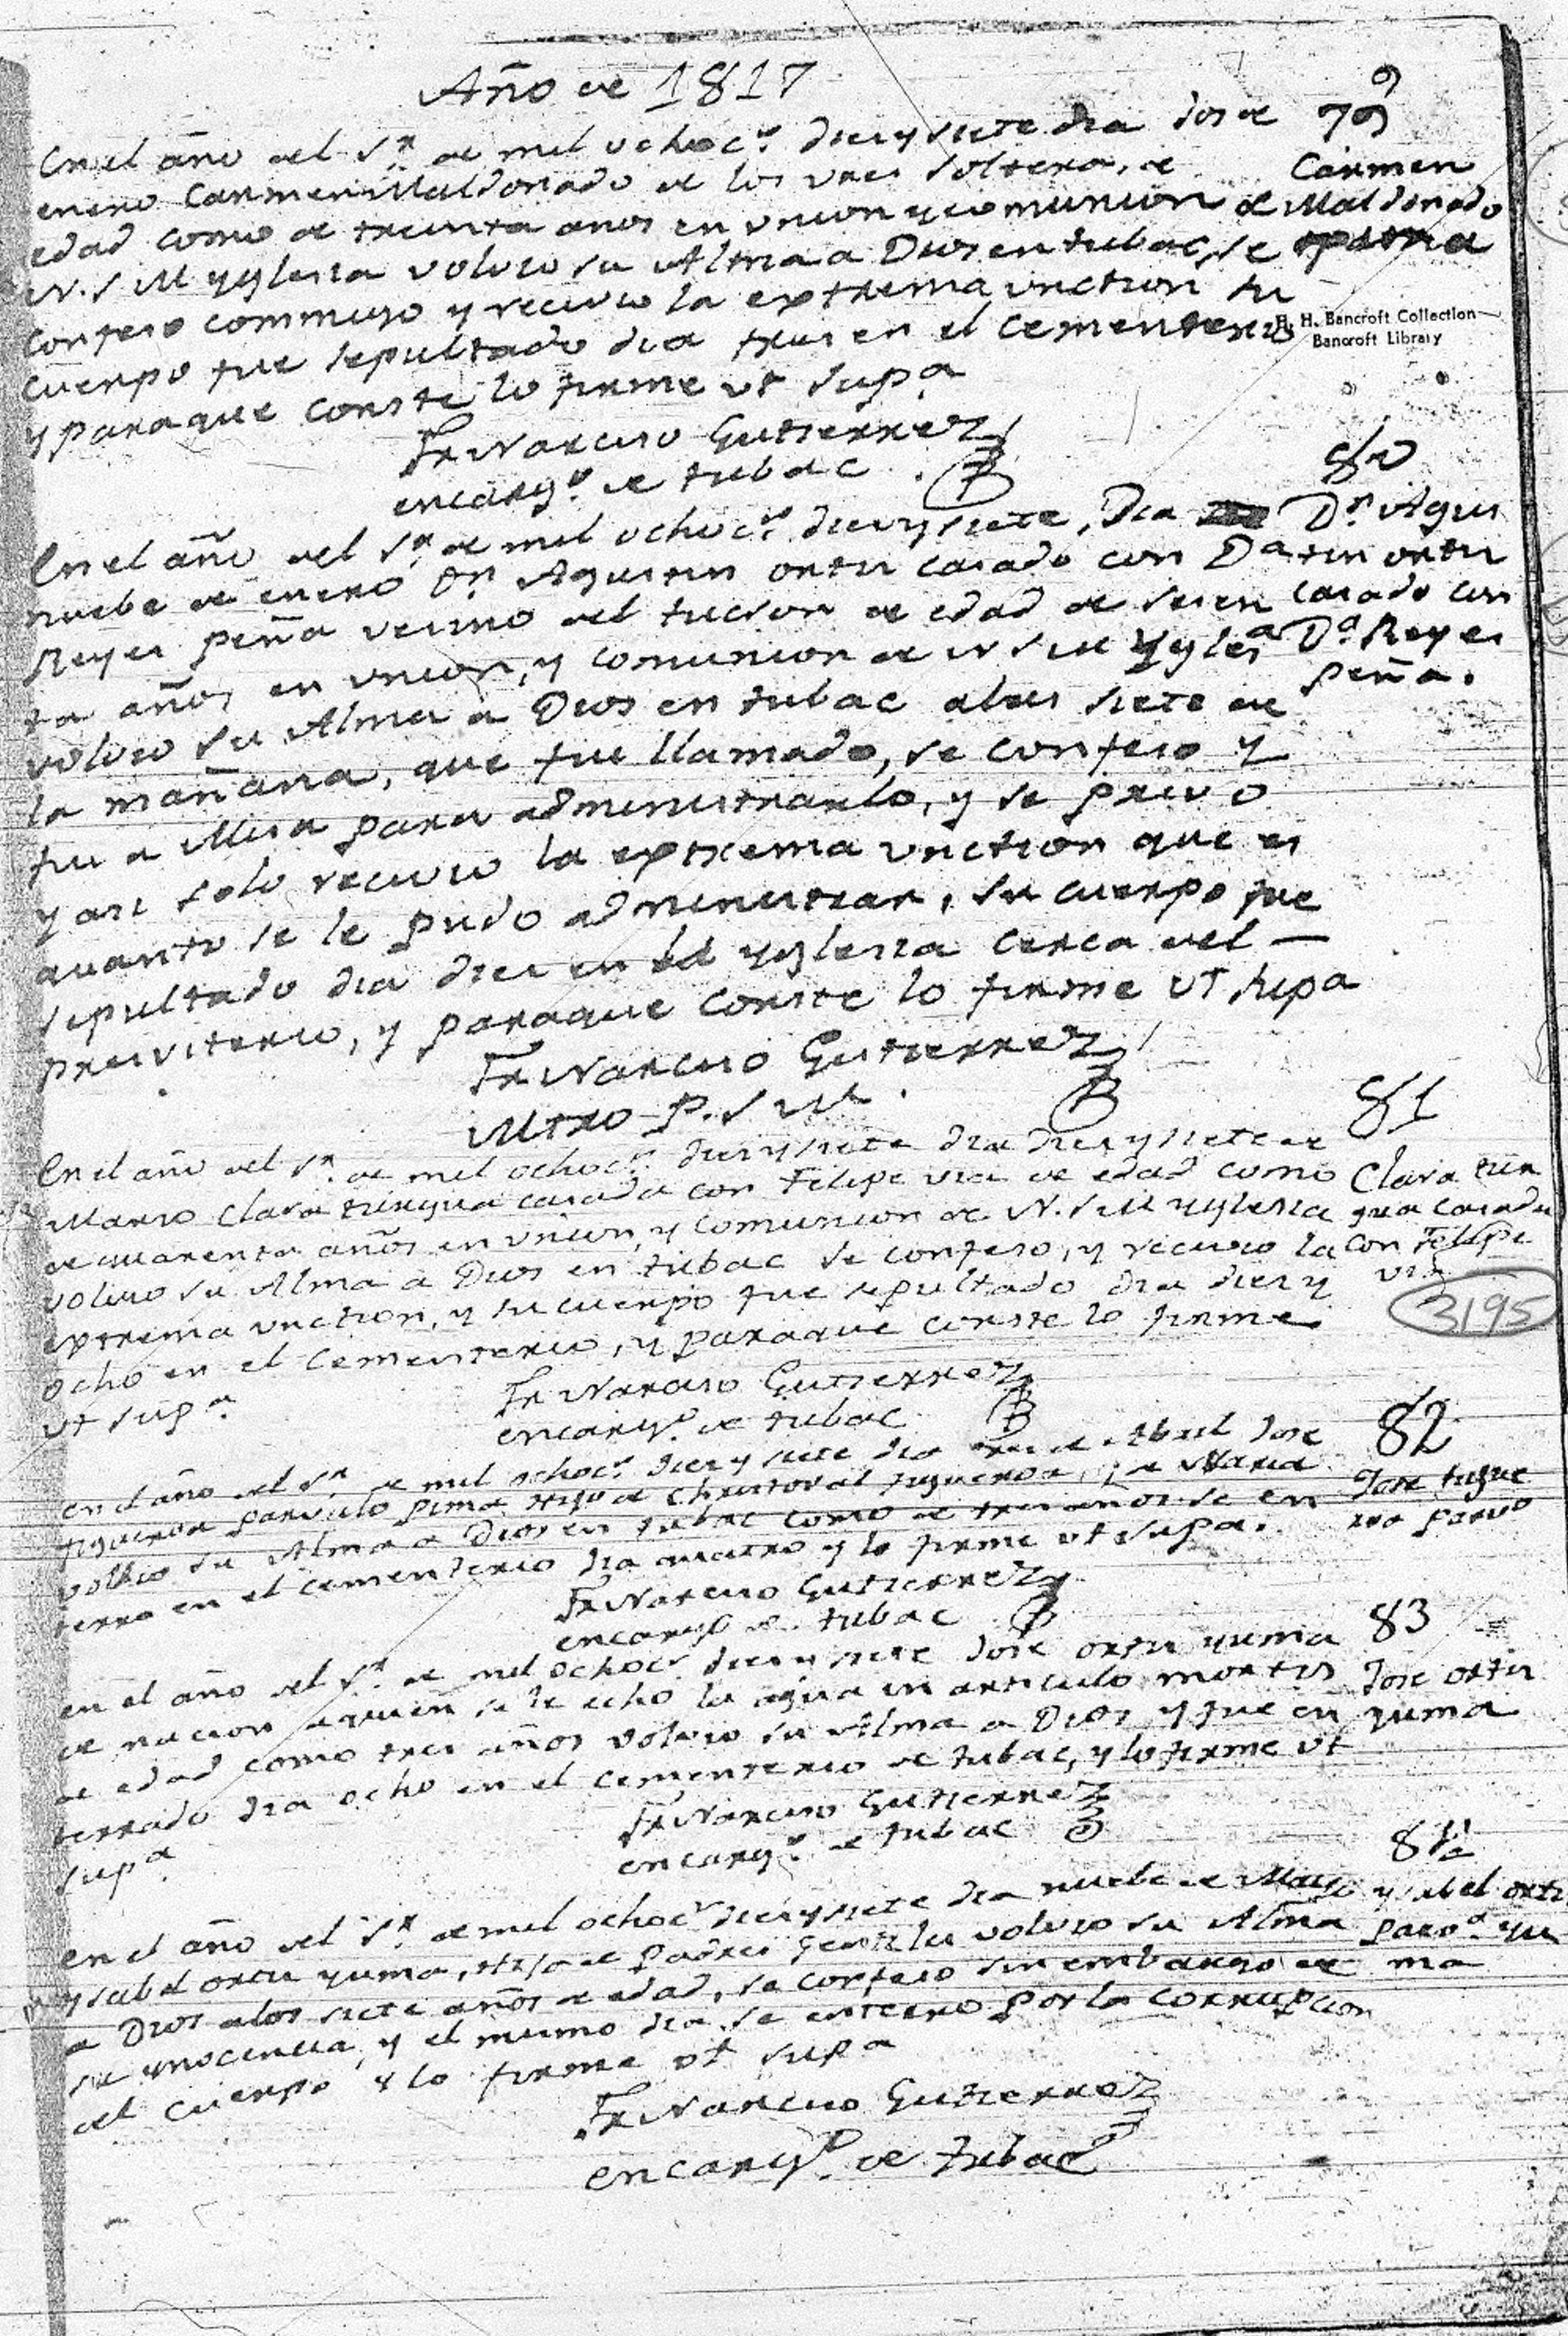 Año de 1817
79
En el año del Sr. de mil ochocs. diez y siete dia dos de
enero Carmen Maldonado de los vres soltera, de
edad como de treinta años en union y comunion de
N. S M yglesia volvio su Alma a Dios en tubac, se
confeso commugo y recivio la extrema unction su
cuerpo fue sepultado dia tres en el cementerio
y paraque conste lo firme ut supa
Carmen
Maldonado
H. H. Bancroft Collection
Bancroft Library
Fr Narciso Gutierrez
encargo. de tubac
80
En el año del Sr. de mil ochocs. diez y siete, Dia
nuebe de enero Dn Agustin ortis casado con Da
Reyes peña vecino del tucson de edad de sesen
ta años en union, y comunion de N S M Yglesa
volvio su Alma a Dios en tubac alas siete de
la mañana, que fue llamado, se confeso y
fui a Misa para administrarlo, y se privo
y asi solo recivio la extrema unction que es
quanto se le pudo administrar, su cuerpo fue
sepultado dia dies en la yglesia cerca del —
presviterio, y paraque conste lo firme ut supa
Dn. Agus
tin ortis
casado con
Da. Reyes
peña.
Fr Narciso Gutierrez
Mtro P. S M.
81
En el año del Sr. de mil ochocs. diez y siete dia diez y siete de
Marzo Clara tungua casada con Felipe vra de edad como
de quarenta años en union, y comunion de N. S M yglesia
volvio su Alma a Dios en tubac se confeso, y recivio la
extrema unction, y su cuerpo fue sepultado dia diez y
ocho en el cementerio, y paraque conste lo firme
ut supa.
Clara tun
gua casada
con Felipe
3195
Fr Narciso Gutierrez
encargo. de tubac
82
en el año del Sr. de mil ochocs. diez y siete dia tres de Abril Jose
figueroa parvulo pima Hijo de Christoval figueroa, y de Maria
volvio su Alma a Dios en tubac como de tres años se en
terro en el cementerio dia quatro y lo firme ut supa.
Jose figue
roa parvo
Fr Narciso Gutierrez
encargo de tubac
83
en el año del Sr. de mil ochocs. diez y siete Jose ortis yuma
de nacion aquien se le echo la agua in articulo mortis
de edad como tres años volvio su Alma a Dios y fue en
terrado dia ocho en el cementerio de tubac, y lo firme ut
supa
Jose ortis
yuma
Fr Narciso Gutierrez
encargo. de tubac
84
en el año del Sr. de mil ochocs diez y siete dia nuebe de Mayo
ysabel ortis yuma, Hija de Padres Gentiles volvio su Alma
a Dios alos siete años de edad, se confeso sin embargo de
su ynocencia, y el mismo dia se enterro por la corrupcion
del cuerpo y lo firme ut supa
ysabel orti
parva. yu
ma
Fr Narciso Gutierrez
encargo. de tubac